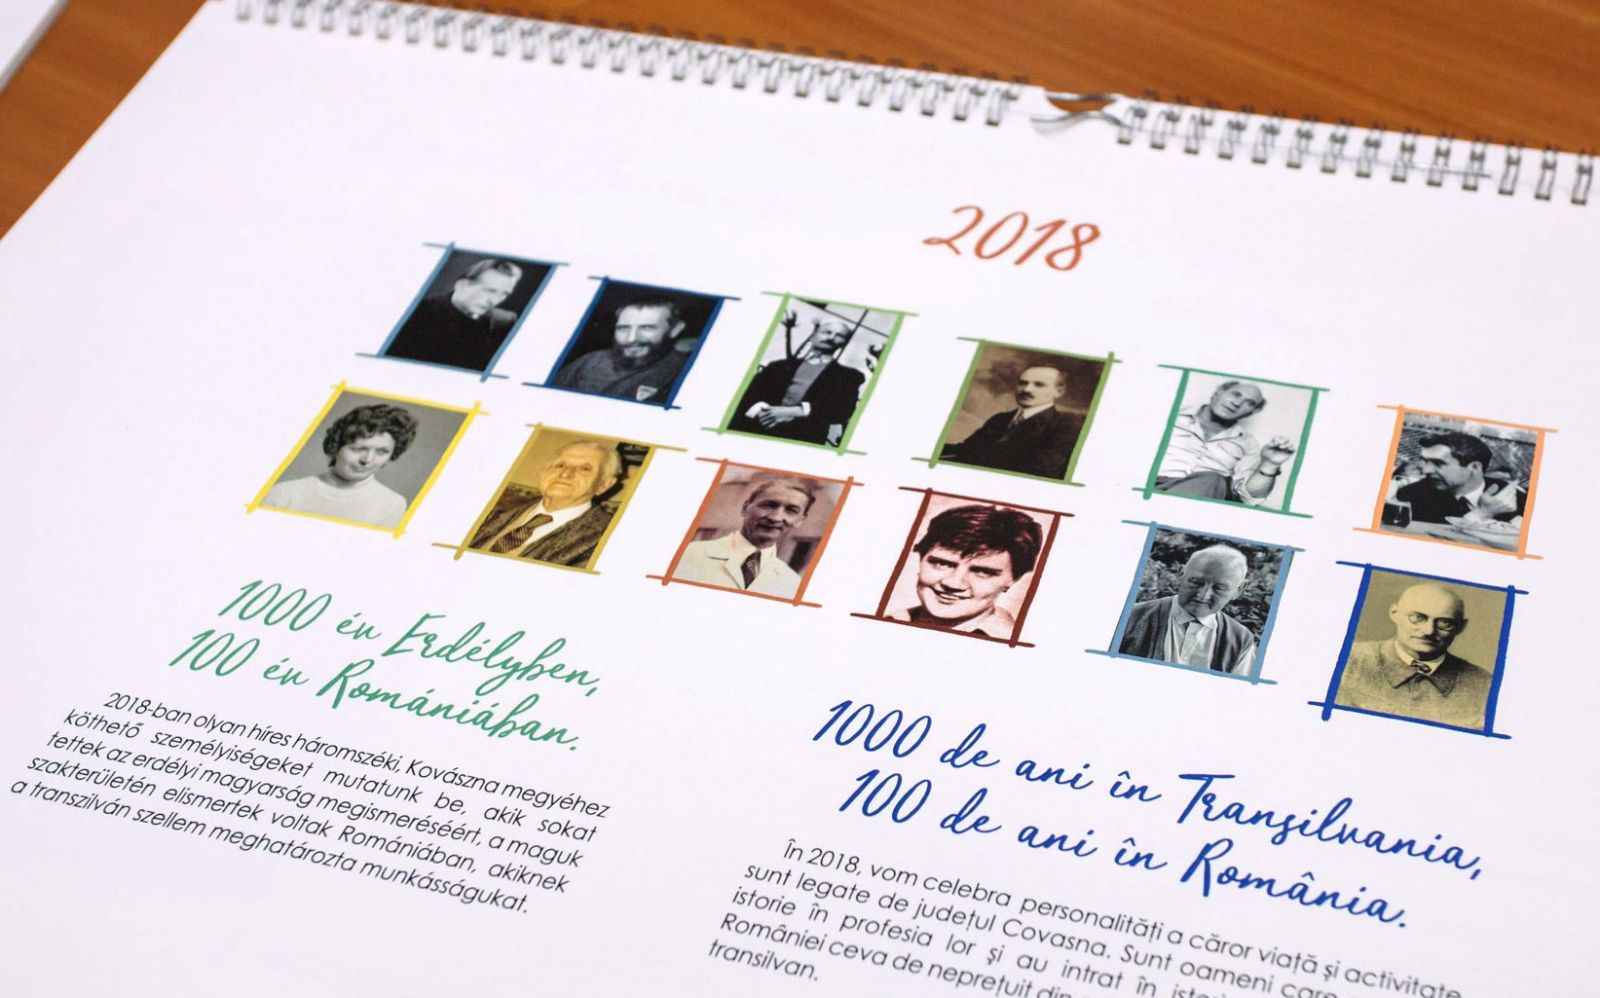 2018
1000 év Erdélyben,
100 év Romániában.
2018-ban olyan híres háromszéki, Kovászna megyéhez
köthető személyiségeket mutatunk be, akik sokat
tettek az erdélyi magyarság megismeréséért, a maguk
szakterületén elismertek voltak Romániában, akiknek
a transzilván szellem meghatározta munkásságukat.
1000 de ani în Transilvania,
100 de ani în România.
În 2018, vom celebra personalități a căror viață și activitate
sunt legate de județul Covasna. Sunt oameni care
istorie în profesia lor și au intrat în
României ceva de neprețuit din
transilvan.